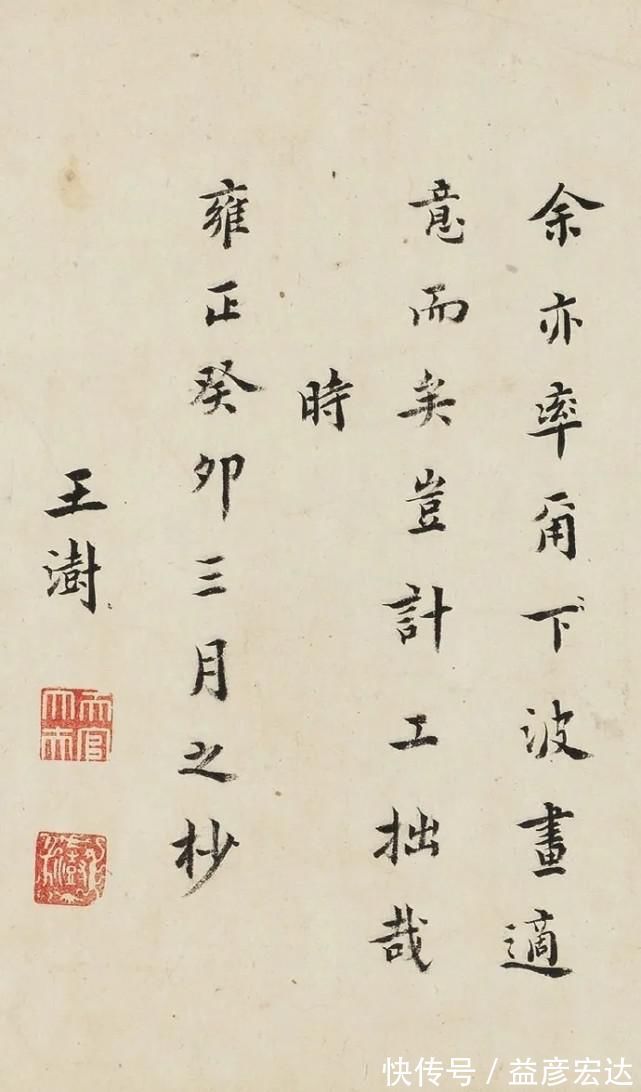 余亦率甬下波畫適
意而矣豈計工拙哉
時
雍正癸卯三月之杪
王澍
快传号／益彦宏达